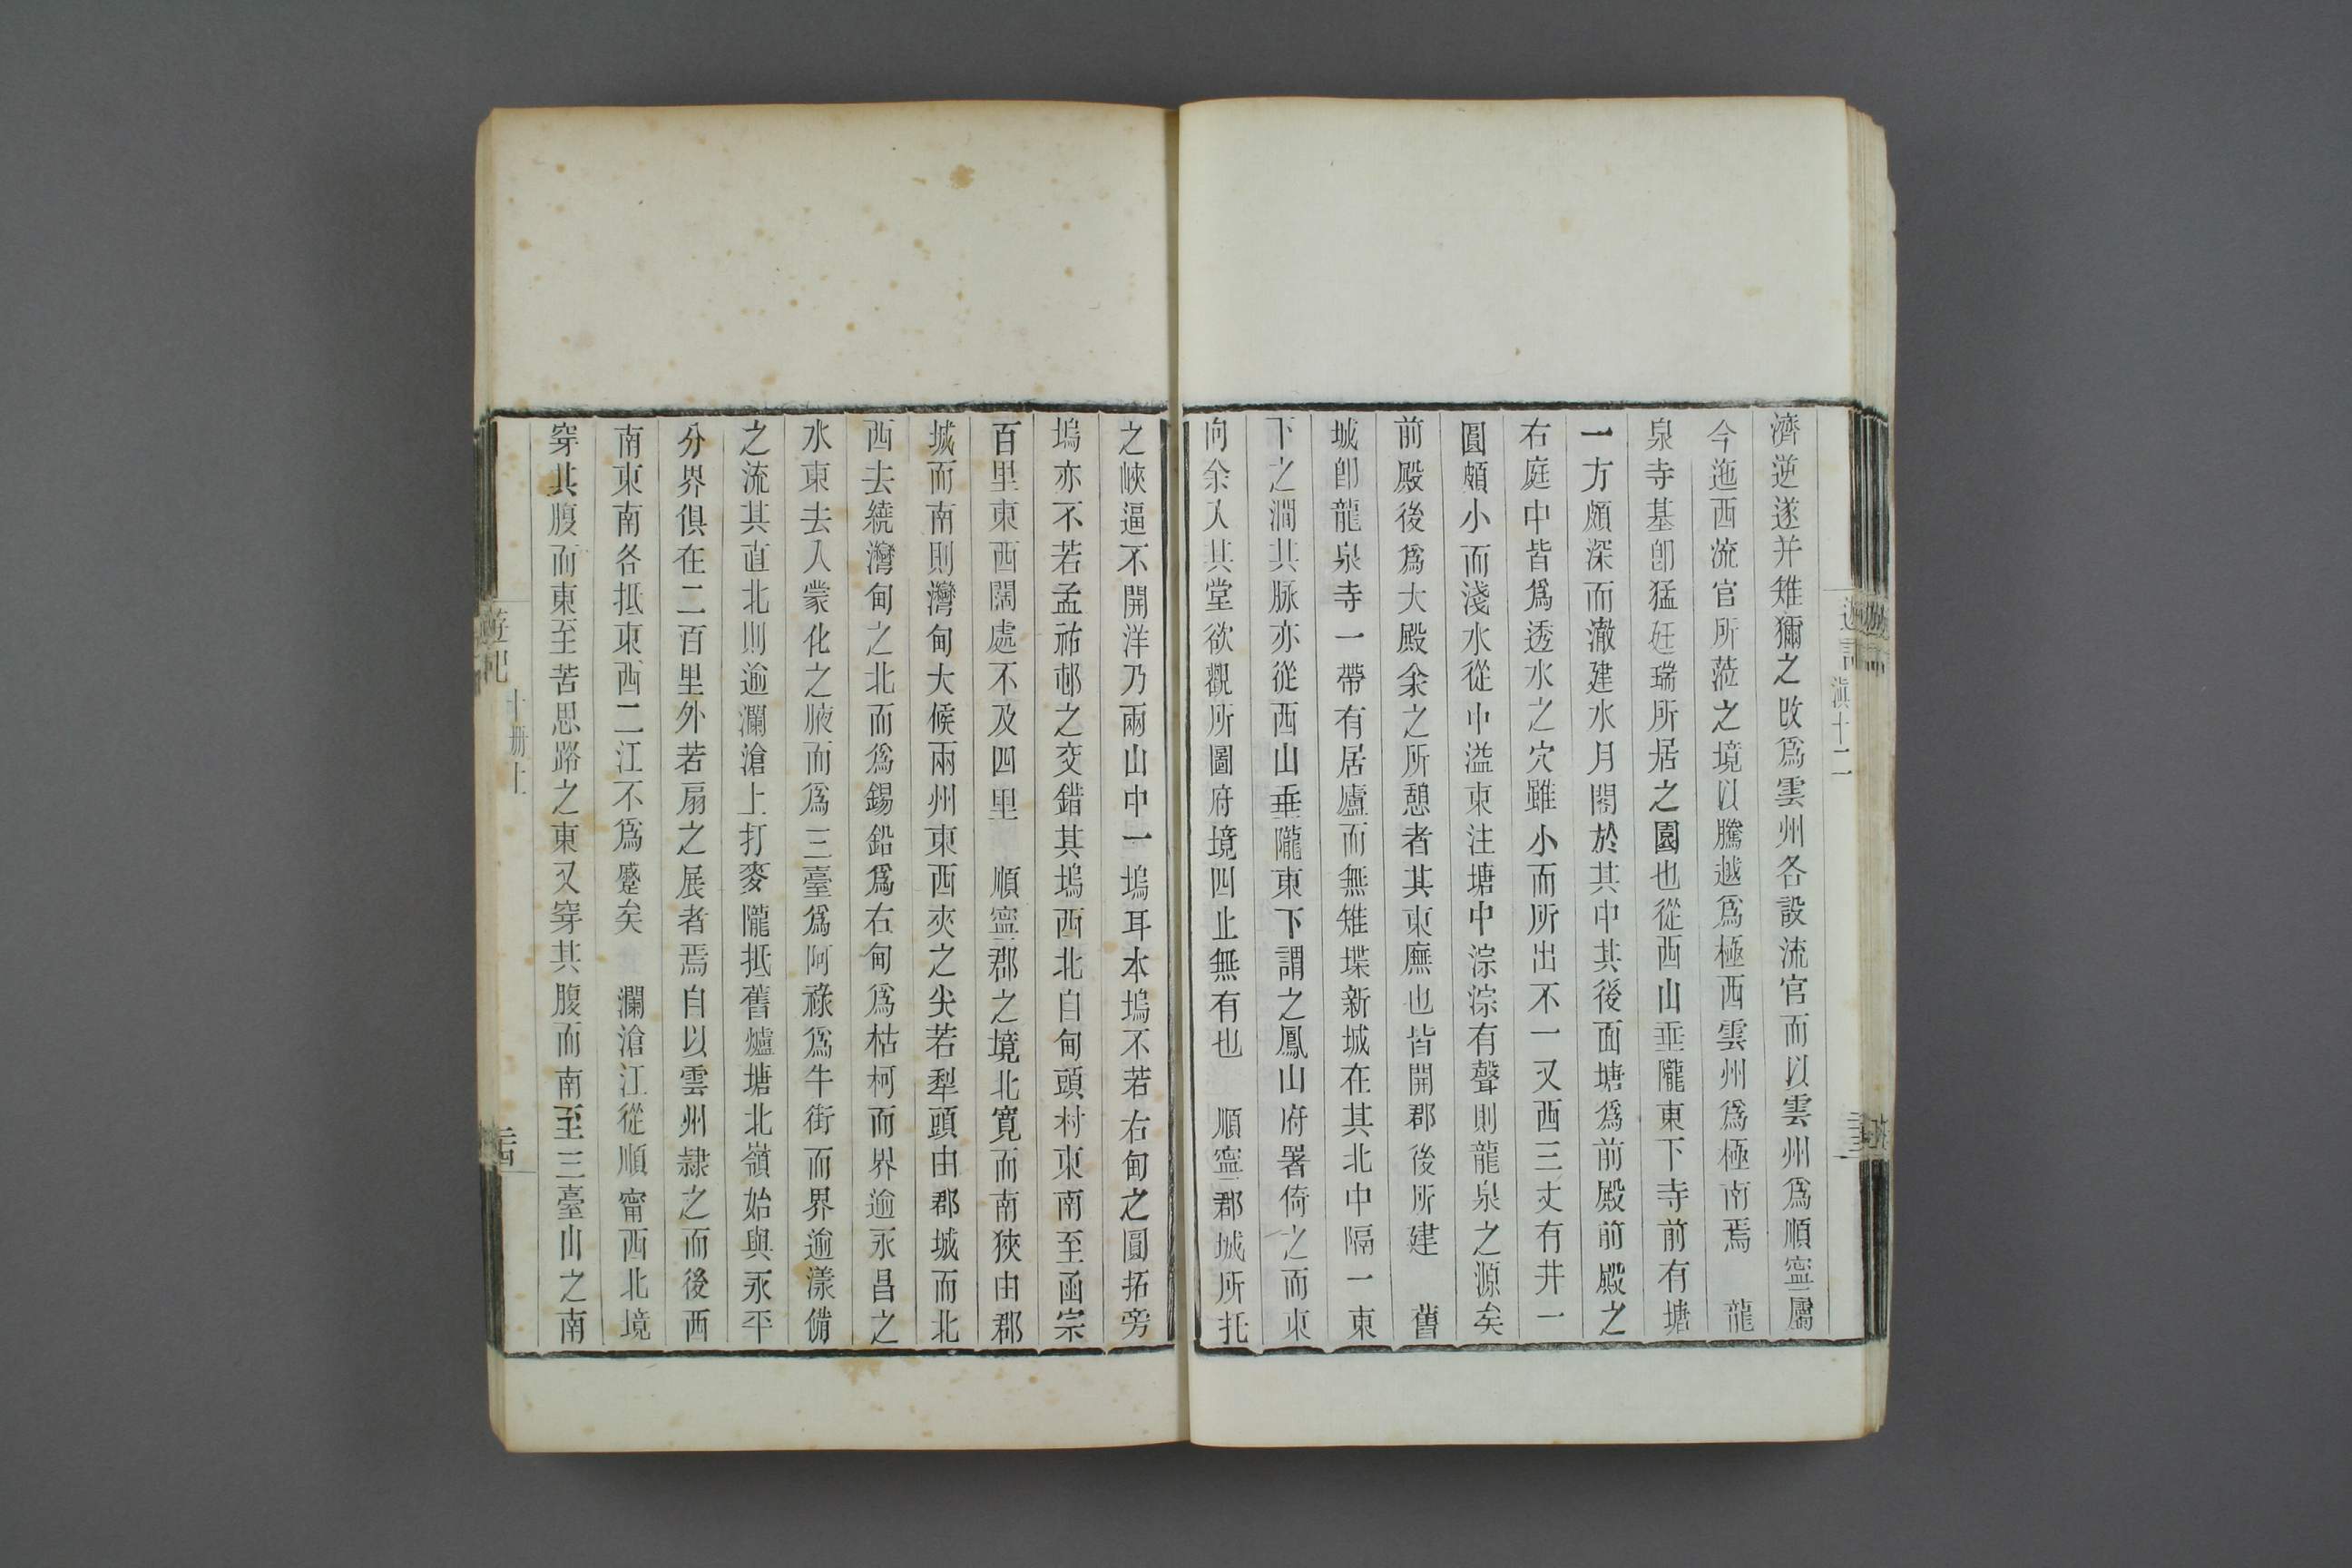 遊記 滇十二
濟逆遂并雉獮之改爲雲州各設流官而以雲州爲順寧屬
今迤西流官所蒞之境以騰越爲極西雲州爲極南焉　龍
泉寺基卽猛廷瑞所居之園也從西山垂隴東下寺前有塘
一方頗深而澈建水月閣於其中其後面塘爲前殿前殿之
右庭中皆爲透水之穴雖小而所出不一又西三丈有井一
圓頗小而淺水從中溢東注塘中淙淙有聲則龍泉之源矣
前殿後爲大殿余之所憩者其東廡也皆開郡後所建　舊
城卽龍泉寺一帶有居廬而無雉堞新城在其北中隔一東
下之澗其脉亦從西山垂隴東下謂之鳳山府署倚之而東
向余入其堂欲觀所圖府境四止無有也　順寧郡城所托
之峽逼不開洋乃兩山中一塢耳本塢不若右甸之圓拓旁
塢亦不若孟祐邨之交錯其塢西北自甸頭村東南至函宗
百里東西闊處不及四里　順寧郡之境北寬而南狹由郡
城而南則灣甸大候兩州東西夾之尖若犁頭由郡城而北
西去繞灣甸之北而爲錫鉛爲右甸爲枯柯而界逾永昌之
水東去入蒙化之腋而爲三臺爲阿祿爲牛街而界逾漾備
之流其直北則逾瀾滄上打麥隴抵舊爐塘北嶺始與永平
分界俱在二百里外若扇之展者焉自以雲州隸之而後西
南東南各抵東西二江不爲蹙矣　瀾滄江從順甯西北境
穿其腹而東至苦思路之東又穿其腹而南至三臺山之南
遊記 十册上 二十四